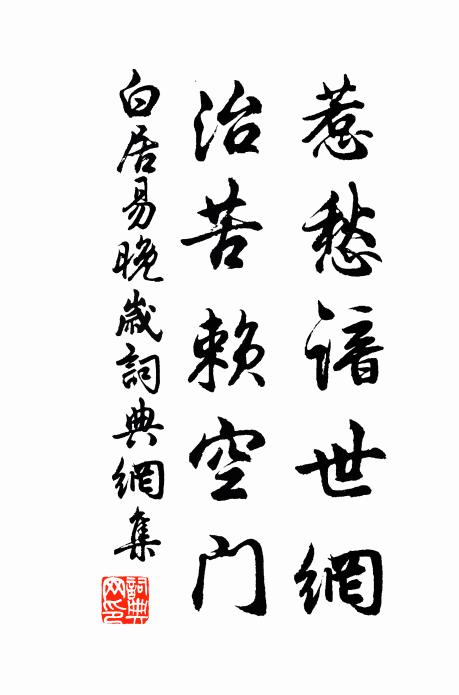 惹愁諳世網
治苦賴空門
白居易晚歲詞典網集
詞典網印